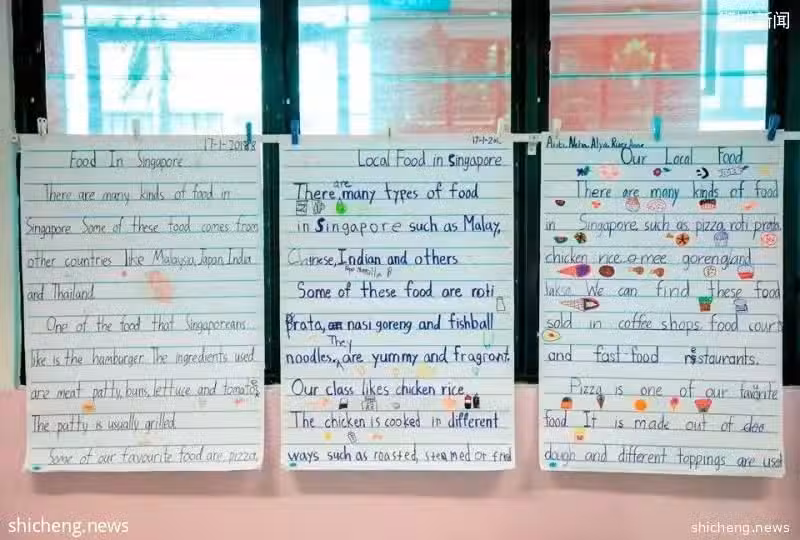 新闻
17-1-2018
Food In Singapore
There are many kinds of food in
Singapore. Some of these food comes from
other countries like Malaysia, Japan, India
and Thailand
One of the food that Singaporeans
like is the hamburger. The ingredients used
are meat patty, buns, lettuce and tomatoes
The patty is usually grilled.
Some of our favourite food are pizza,
17-1-20
Local Food in Singapore
There are many types of food
in Singapore such as Malay,
Chinese, Indian and others
Some of these food are roti
prata, nasi goreng and fishball
noodles. They are yummy and fragrant.
Our class likes chicken rice
The chicken is cooked in different
ways such as roasted, steamed or fried
Our Local Food
There are many kinds of food
in Singapore such as pizza, roti prata
chicken rice, mee goreng and
laksa. We can find these food
sold in coffee shops, food court
and fast-food restaurants.
Pizza is one of our favourite
food. It is made out of
dough and different toppings are used
shicheng.news
shicheng.news